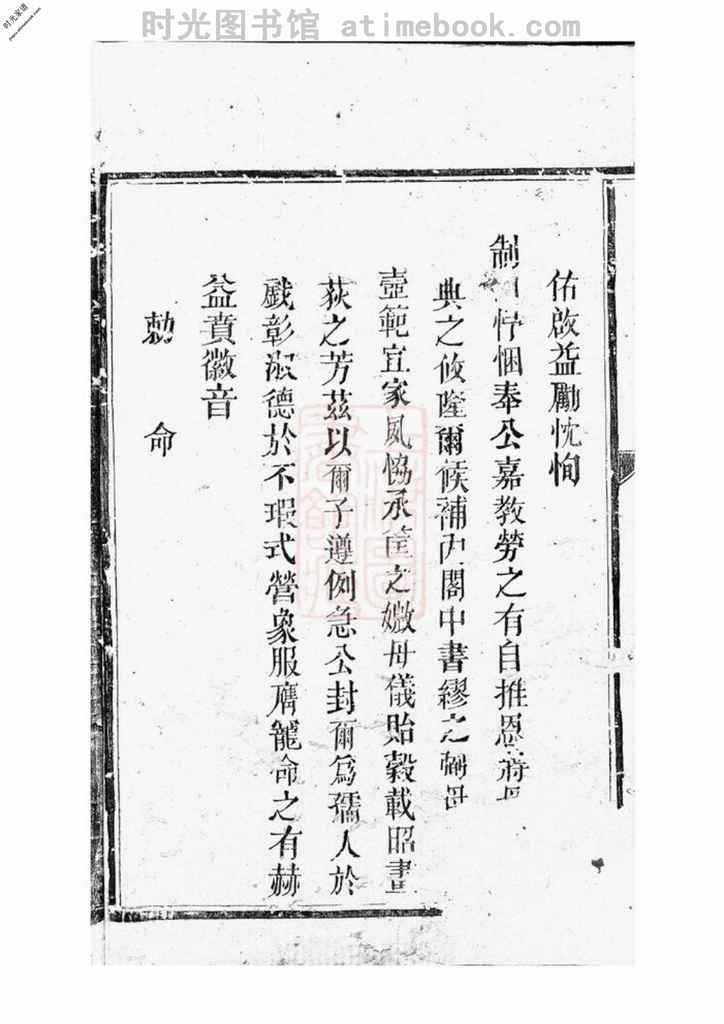 时光图书馆 atimebook.com
时光家谱
佑啟益勵忱恂
制曰悃奉公嘉教勞之有自推恩
典之攸隆爾候補內閣中書繆之母
壼範宜家夙恊承筐之媺母儀貽穀載昭畫
荻之芳茲以爾子遵例急公封爾爲孺人於
戲彰淑德於不瑕式營象服膺寵命之有赫
益賁徽音
勅命